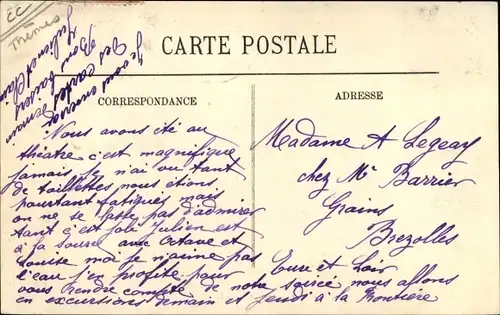 CC
Thèmes
Je vous enverrai
des cartes demain
Bons baisers
Julien et
CARTE POSTALE
CORRESPONDANCE
ADRESSE
Nous avons été au
théatre c'est magnifique
jamais je n'ai vu tant
de toillettes nous étions
pourtant fatigués mais
on ne se lasse pas d'admirer
tant c'est joli Julien est
à la source avec Octave et
Louise moi je n'aime pas
l'eau j'en profite pour
vous rendre compte de notre soirée nous allons
en excursions demain et jeudi à la frontière
Madame A Legeay
chez Mr Barrier
Grains
Brezolles
Eure et Loir